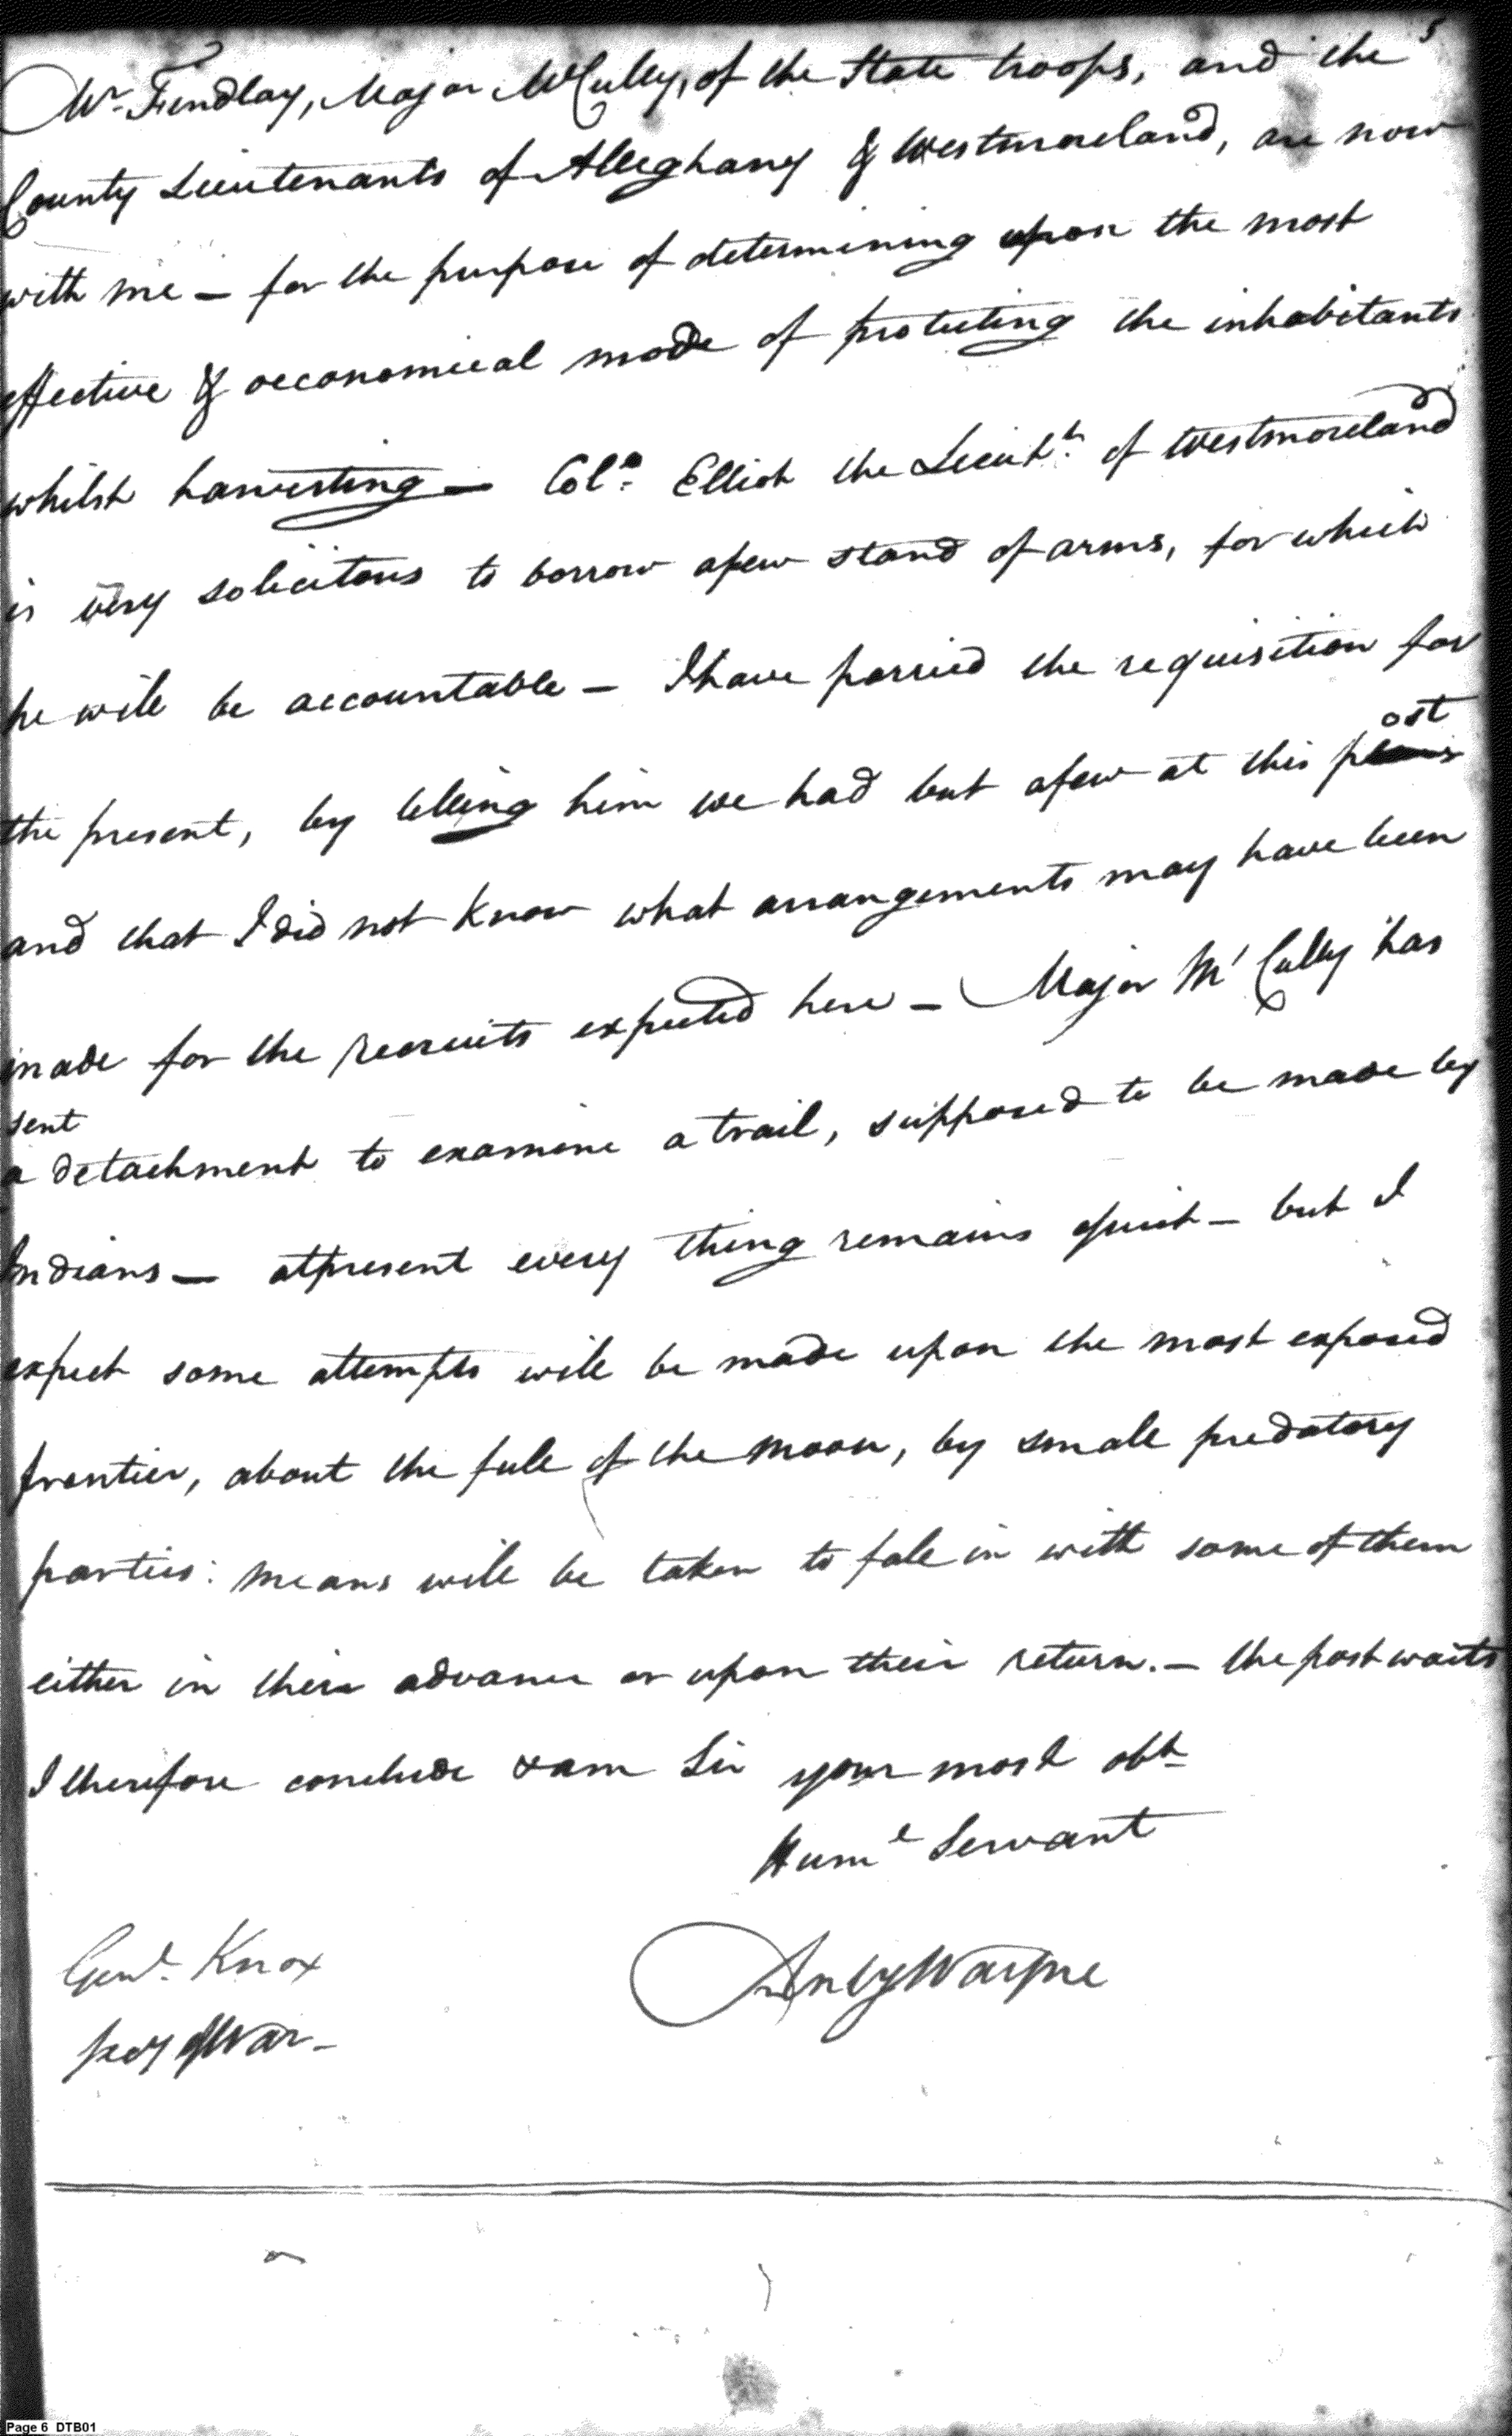 5
Mr. Findlay, Major McCully, of the State troops, and the
County Lieutenants of Alleghany & Westmoreland, are now
with me – for the purpose of determining upon the most
effective & oeconomical mode of protecting the inhabitants
whilst harvesting – Colo. Elliot the Lieut. of Westmoreland
is very solicitous to borrow a few stand of arms, for which
he will be accountable – I have parried the requisition for
ost
the present, by telling him we had but a few at this p
and that I did not know what arrangements may have been
made for the recruits expected here – Major M' Cully has
sent
a detachment to examine a trail, supposed to be made by
Indians – at present every thing remains quiet – but I
expect some attempts will be made upon the most exposed
frontier, about the full of the moon, by small predatory
parties: means will be taken to fall in with some of them
either in their advance or upon their return. – the post waits
I therefore conclude & am Sir your most obt
Humle Servant
Genl. Knox
Anty Wayne
Secy of War –
Page 6 DTB01